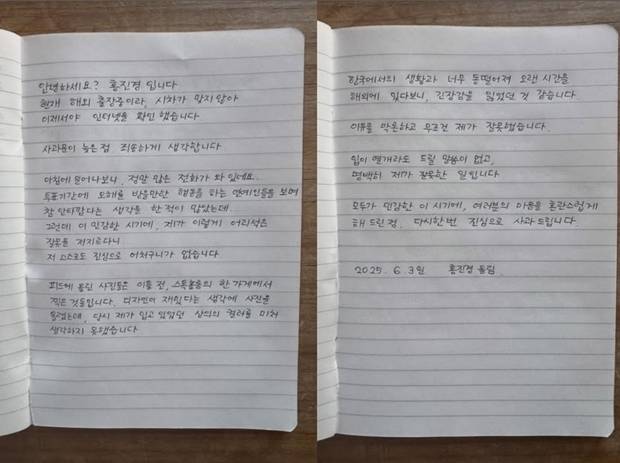 안녕하세요? 홍진경 입니다
현재 해외 출장중이라, 시차가 맞지 않아
이제서야 인터넷을 확인 했습니다.
사과문이 늦은 점 죄송하게 생각합니다.
아침에 일어나보니, 정말 많은 전화가 와 있네요.
투표기간에 오해를 받을만한 행동을 하는 연예인들을 보며
참 안타깝다는 생각을 한 적이 많았는데.
그런데 이 민감한 시기에, 제가 이렇게 어리석은
잘못을 저지르다니
저 스스로도 진심으로 어처구니가 없습니다.
피드에 올린 사진들은 이틀 전, 스톡홀롬의 한 가게에서
찍은 것들입니다. 디자인이 재밌다는 생각에 사진을
올렸는데, 당시 제가 입고 있었던 상의의 컬러를 미처
생각하지 못했습니다.
한국에서의 생활과 너무 동떨어져 오랜시간을
해외에 있다보니, 긴장감을 잃었던 것 같습니다.
이유를 막론하고 무조건 제가 잘못했습니다.
입이 열개라도 드릴 말씀이 없고,
명백히 제가 잘못한 일입니다.
모두가 민감한 이 시기에, 여러분의 마음을 혼란스럽게
해 드린 점, 다시한번 진심으로 사과드립니다.
2025. 6. 3일 홍진경 올림